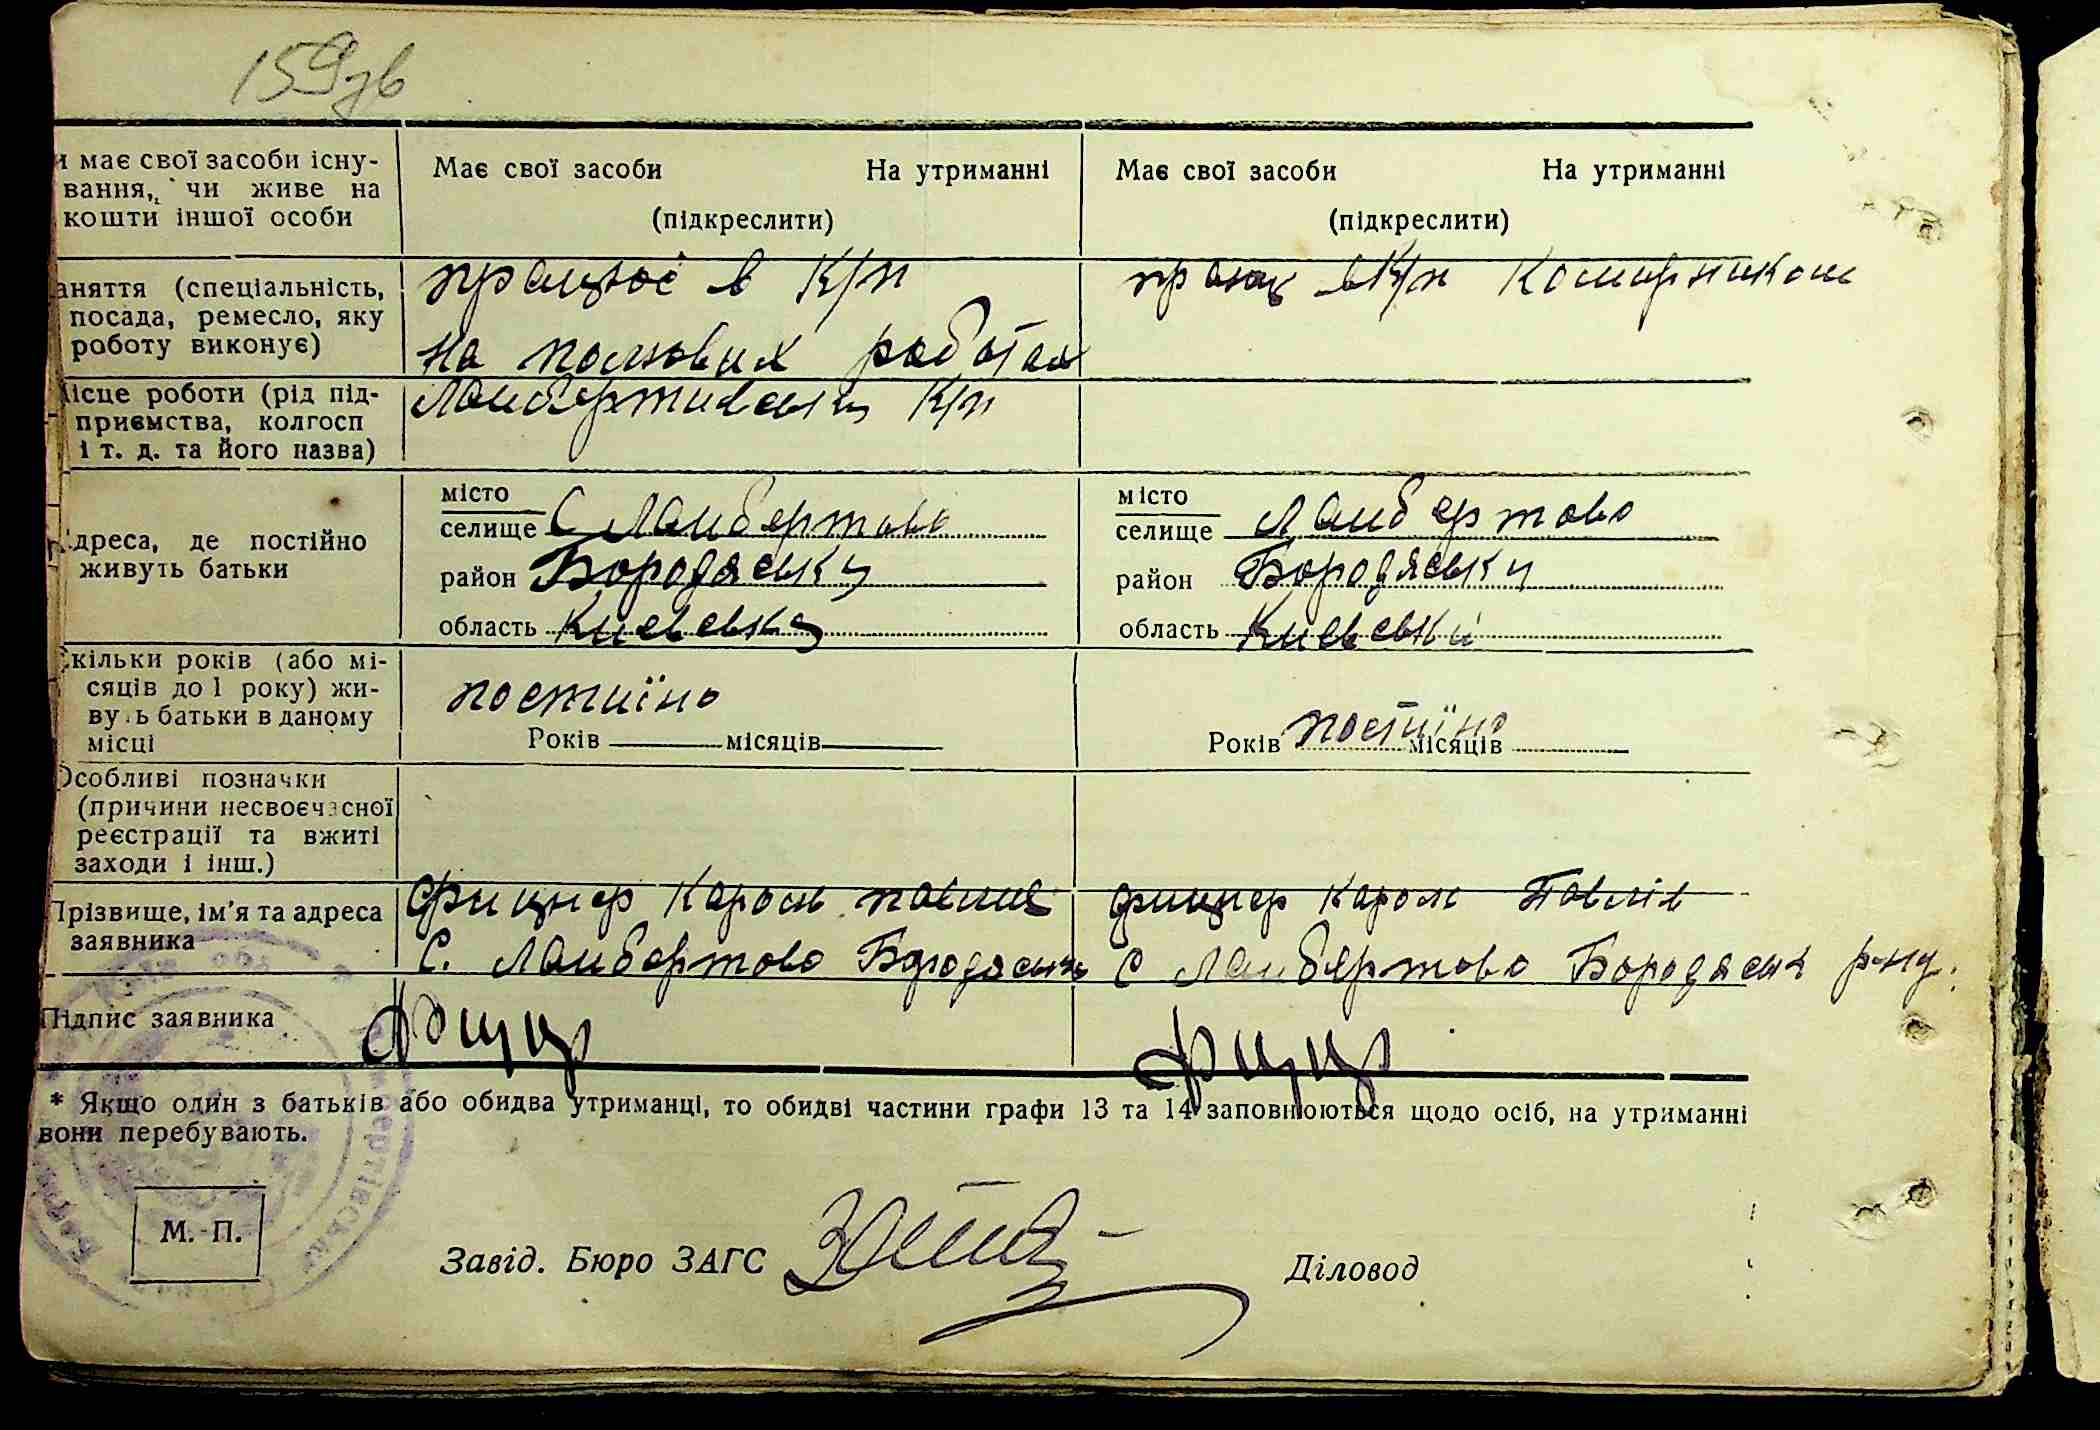 159зв
и має свої засоби існу-
вання, чи живе на
кошти іншої особи
Має свої засоби На утриманні
(підкреслити)
Має свої засоби На утриманні
(підкреслити)
аняття (спеціальність,
посада, ремесло, яку
роботу виконує)
працює в К/п
на польових роботах
працює в К/п Комірником
Місце роботи (рід під-
приємства, колгосп
і т. д. та його назва)
Ламбертивский К/п
Адреса, де постійно
живуть батьки
місто
селище С Ламбертово
район Бородяський
область Киевська
місто
селище Ламбертово
район Бородяський
область Киевський
Скільки років (або мі-
сяців до 1 року) жи-
вуть батьки в даному
місці
постиїно
Років місяців
Років постиїно місяців
Особливі позначки
(причини несвоєчасної
реєстрації та вжиті
заходи і інш.)
Прізвище, ім'я та адреса
заявника
Фицнер Кароль павлив
С. Ламбертово Бородяськ
Фицнер Кароль Павлів
С Ламбертово Бородяськ р-ну.
Підпис заявника
Фицнер
Фицнер
* Якщо один з батьків або обидва утриманці, то обидві частини графи 13 та 14 заповнюються щодо осіб, на утриманні
вони перебувають.
М. П.
Завід. Бюро ЗАГС
Діловод